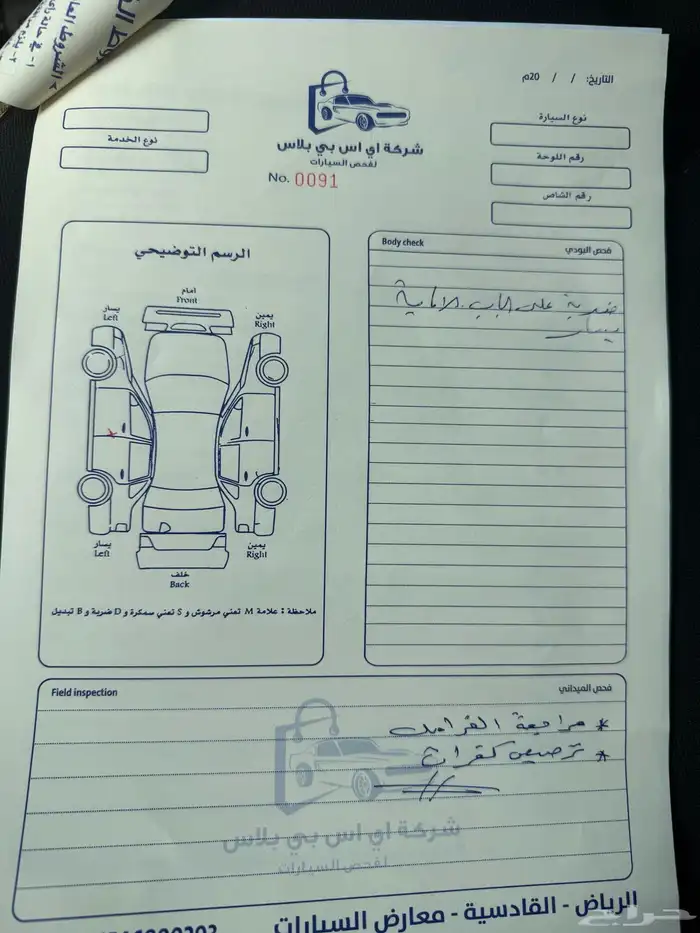 التاريخ: / / 20م
شركة اي اس بي بلاس
لفحص السيارات
No. 0091
نوع السيارة
رقم اللوحة
رقم الشاص
نوع الخدمة
الرسم التوضيحي
امام
Front
يسار
Left
يمين
Right
يسار
Left
يمين
Right
خلف
Back
ملاحظة : علامة M تعني مرشوش و S تعني سمكرة و D ضربة و B تبديل
Body check
فحص البودي
ضربة على الباب الامامية
يسار
Field inspection
فحص الميداني
* مراجعة الفرامل
* ترصيص كفرات
شركة اي اس بي بلاس
لفحص السيارات
الرياض - القادسية - معارض السيارات
حراج